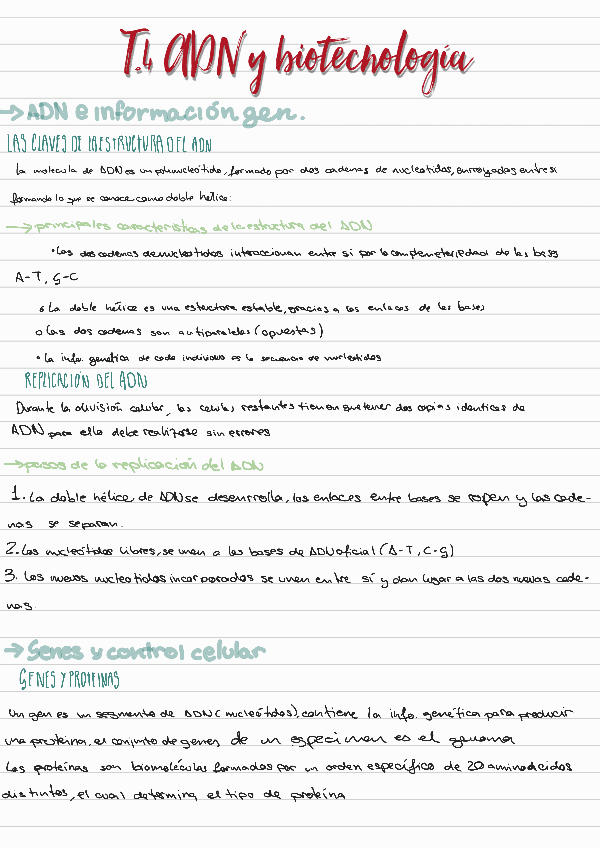 T.4 ADN y biotecnología
→ADN e información gen.
LAS CLAVES DE LA ESTRUCTURA DEL ADN
La molecula de ADN es un polinucleótido, formado por dos cadenas de nucleotidos, enrroyadas entre si
formando lo que se conoce como doble hélice:
→principales características de la estructura del ADN
•Las dos cadenas de nucleotidos interaccionan entre si por la complemeteriedad de las bases
A-T, G-C
o La doble hélice es una estructura estable, gracias a los enlaces de las bases
o Las dos cadenas son antiparalelas (opuestas)
• La info. genética de cada individuo es la secuencia de nucleotidos
REPLICACIÓN DEL ADN
Durante la división celular, las celulas restantes tienen que tener dos copias identicas de
ADN para ello debe realizarse sin errores
→pasos de la replicación del ADN
1. La doble hélice, de ADN se desenrrolla, los enlaces entre bases se ropen y las cade-
nas se separan.
2. Los nucleótidos libres, se unen a las bases de ADN oficial (A-T, C-G)
3. Los nuevos nucleotidos incorporados se unen entre sí y dan lugar a las dos nuevas cade-
nas.
→Genes y control celular
GENES Y PROTEINAS
Un gen es un segmento de ADN (nucleótidos), contiene la info. genética para producir
una proteína. el conjunto de genes de un especimen es el genoma
Las proteínas son biomoléculas formadas por un orden específico de 20 aminoácidos
distintos, el cual determina el tipo de proteína